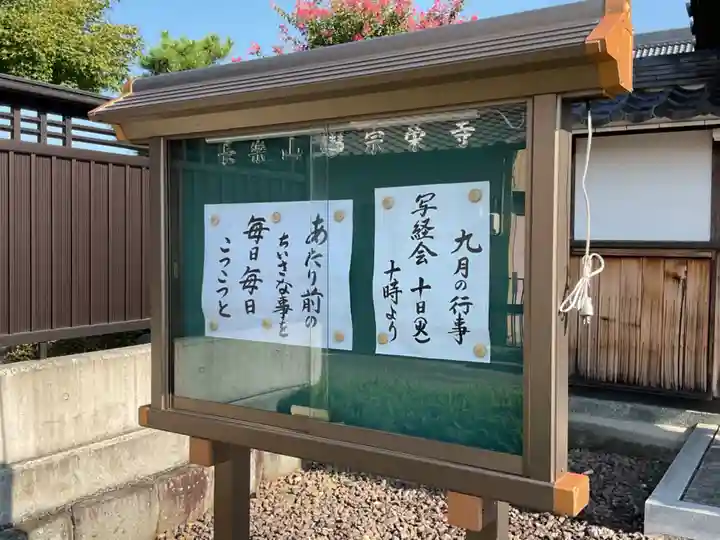 宗栄寺
九月の行事
写経会 十日(火)
十時より
あたり前の
ちいさな事を
毎日毎日
こつこつと